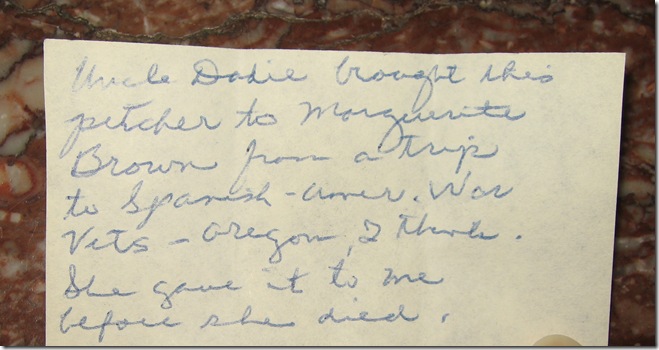 Uncle Dodie brought this
pitcher to Marguerite
Brown from a trip
to Spanish-Amer. War
Vets - Oregon, I think.
She gave it to me
before she died.